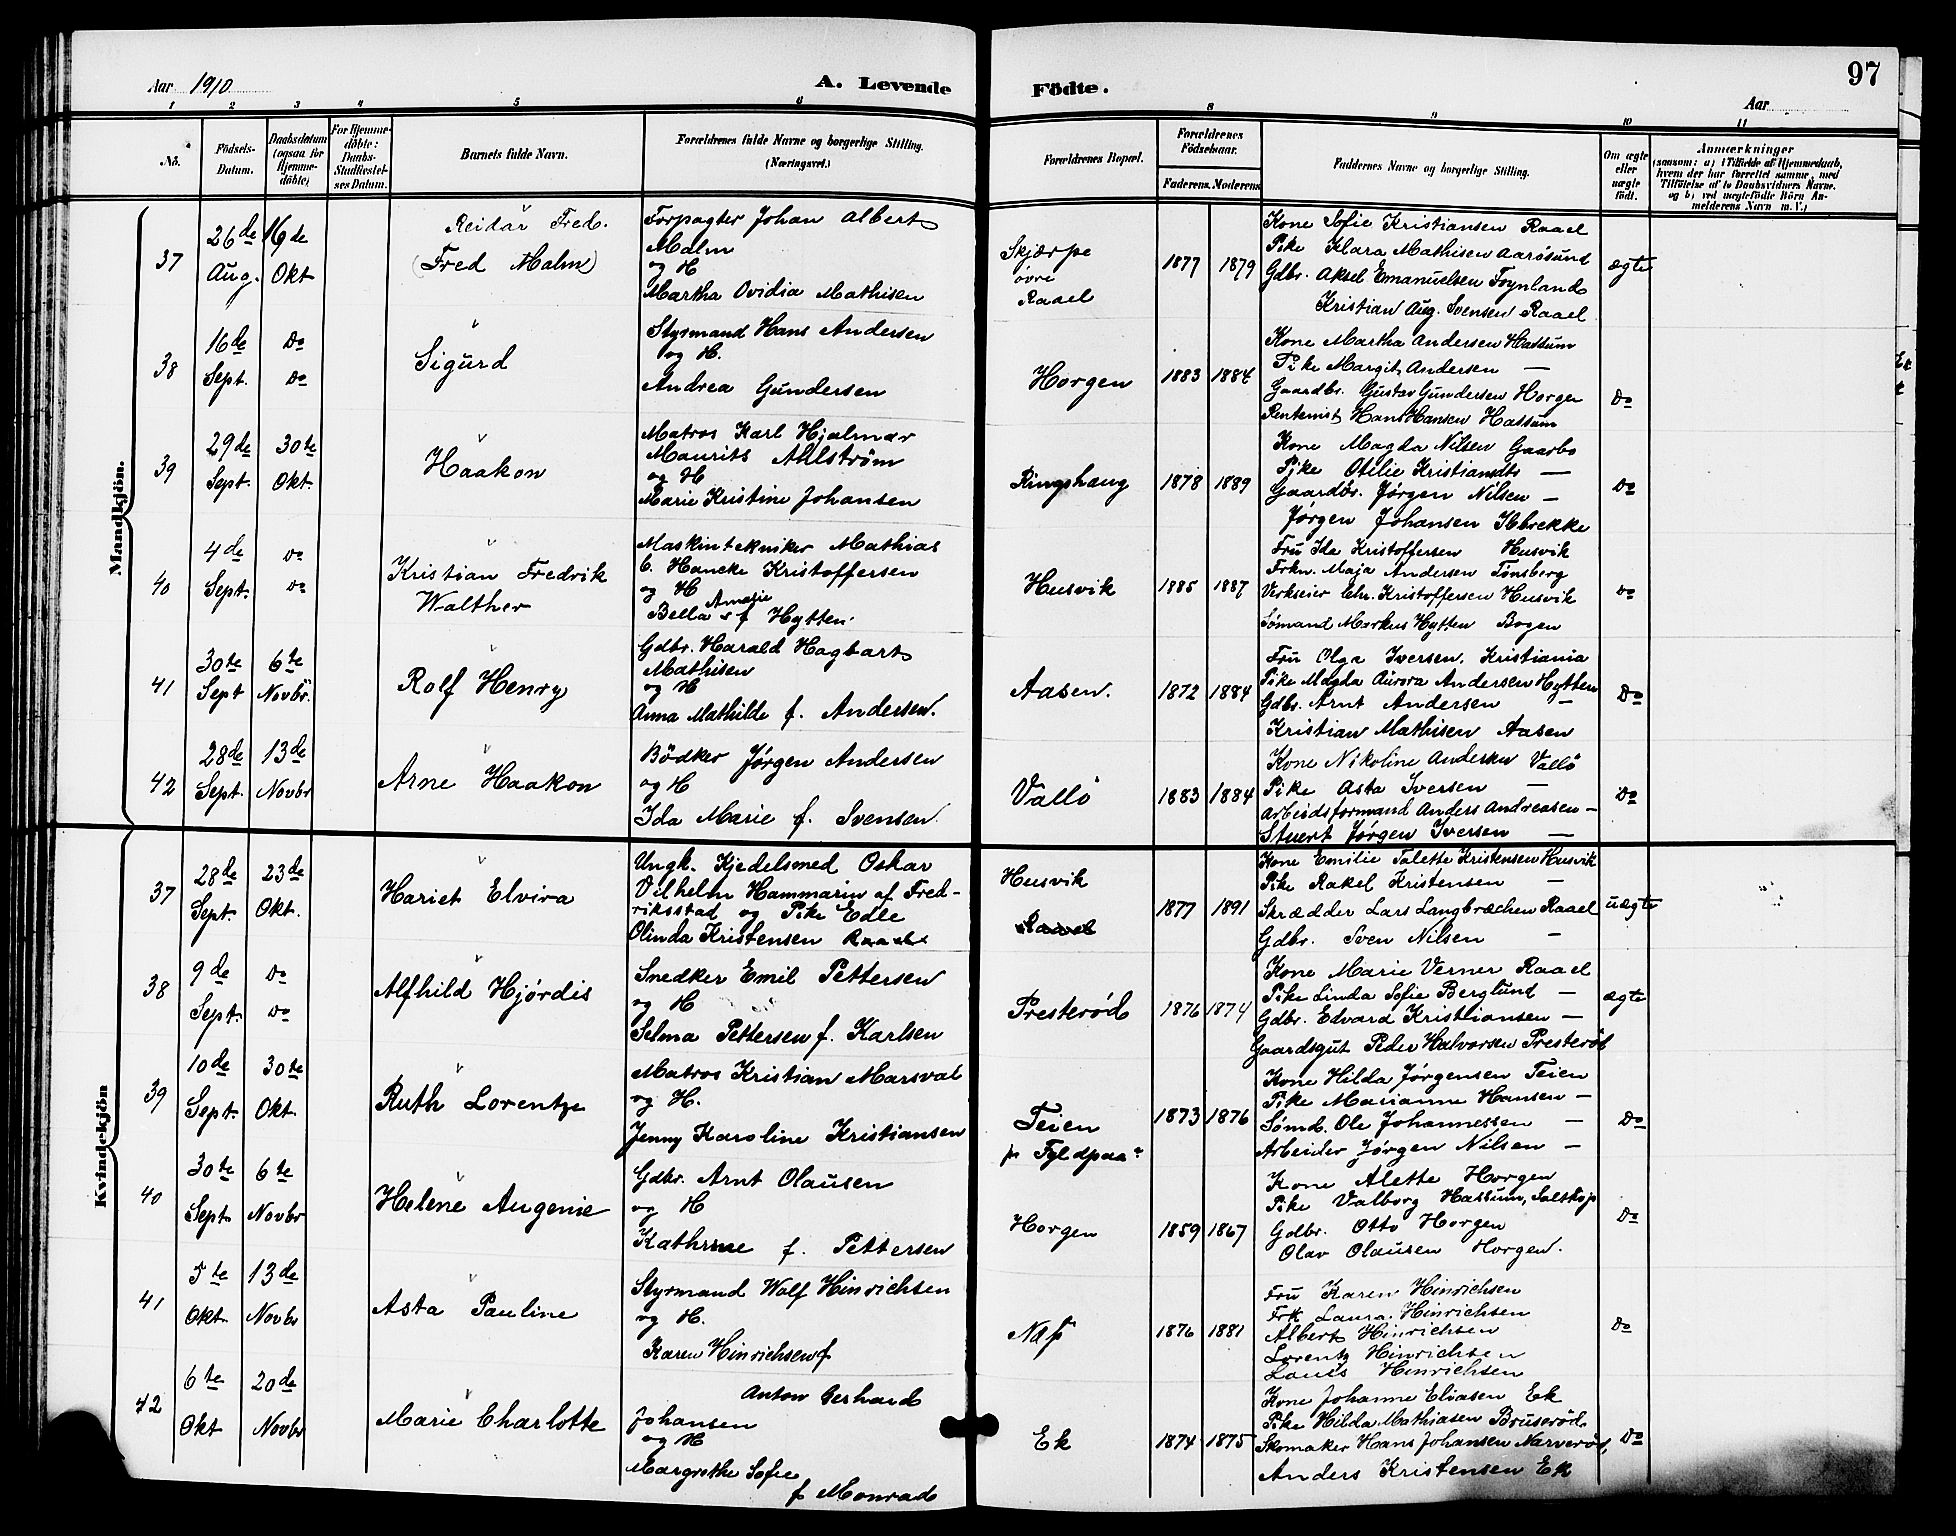 97
Aar 1910
A. Levende Födte.
Aar
1 2 3 4 5 6 8 9 10 11
No.
Födsels-Datum.
Daabsdatum (ogsaa for Hjemmedöbte)
For Hjemmedöbte: Daabs-Stadfæstelses Datum.
Barnets fulde Navn.
Forældrenes fulde Navne og borgerlige Stilling.
(Næringsvei.)
Forældrenes Bopæl.
Forældrenes Födselsaar.
Faderens. Moderens.
Faddernes Navne og borgerlige Stilling.
Om ægte eller uægte födt.
Anmærkninger
(saasom: a) i Tilfælde af Hjemmedaab,
hvem der har forrettet samme, med
Tilföielse af to Daabsvidners Navne.
og b) ved uægtefödte Börn An-
melderens Navn m. V.)
Mandkjön.
37
26de Aug.
16de Okt
Reidar Fred.
(Fred Malm)
Forpagter Johan Albert
Malm
og H
Martha Ovidia Mathisen
Skjærpe
övre
Raael
1877 1879
Kone Sofie Kristiansen Raael
Pike Klara Mathisen Aarösund
Gdbr. Aksel Emanuelsen Föynland
Kristian Aug. Svensen Raael
ægte
38
16de Sept.
Do Do
Sigurd
Styrmand Hans Andersen
og H.
Andrea Gundersen
Horgen
1883 1884
Kone Martha Andersen Hassum
Pike Margit Andersen —
Gaardbr. Gustav Gundersen Horgen
Rentenist Hans Hansen Hassum
Do
39
29de Sept.
30te Okt.
Haakon
Matros Karl Hjalmar
Maurits Ahlström
og H
Marie Kristine Johansen
Ringshaug
1878 1889
Kone Magda Nilsen Gaarbo
Pike Otilie Kristiansdtr —
Gaardbr. Jørgen Nilsen —
Jørgen Johansen Ilbrekke
Do
40
4de Sept.
Do Do
Kristian Fredrik
Walther
Maskintekniker Mathias
C. Hancke Kristoffersen
og H
Bella Amalie f Hytten.
Husvik
1885 1887
Fru Ida Kristoffersen Husvik
Frkn. Maja Andersen Tönsberg
Verkseier Chr. Kristoffersen Husvik
Sömand Markus Hytten Bogen
Do
41
30te Sept
6te Novbr.
Rolf Henry
Gdbr. Harald Hagbart
Mathisen
og H
Anna Mathilde f. Andersen.
Aasen.
1872 1884
Fru Olga Iversen. Kristiania
Pike Magda Aurora Andersen Hytten
Gdbr. Arnt Andersen —
Kristian Mathisen Aasen
Do
42
28de Sept.
13de Novbr
Arne Haakon
Bödker Jørgen Andersen
og H
Ida Marie f. Svensen
Vallö
1883 1884
Kone Nikoline Andersen Vallö
Pike Asta Iversen —
Arbeidsformand Anders Andreasen —
Stuert Jørgen Iversen —
Do
Kvindekjön
37
28de Sept.
23de Okt.
Hariet Elvira
Ungk. Kjedelsmed Oskar
Vilhelm Hammarin af Fred-
riksstad og Pike Edle
Olinda Kristensen Raael
Husvik
Raael
1877 1891
Kone Emilie Talette Kristensen Husvik
Pike Rakel Kristensen —
Skrædder Lars Langbræchen Raael
Gdbr. Sven Nilsen —
uægte
38
9de Sept.
Do Do
Alfhild Hjördis
Snedker Emil Pettersen
og H
Selma Pettersen f. Karlsen
Presteröd
1876 1874
Kone Marie Verner Raael
Pike Linda Sofie Berglund —
Gdbr. Edvard Kristiansen —
Gaardsgut Peder Halvorsen Presteröd
ægte
39
10de Sept.
30te Okt.
Ruth Lorentze
Matros Kristian Marsval
og H.
Jenny Karoline Kristiansen
Teien
1873 1876
Kone Hilda Jørgensen Teien
Pike Marianne Hansen —
Sömd. Ole Johannessen —
Arbeider Jørgen Nilsen —
Do
40
30te Sept.
6te Novbr
Helene Augenie
Gdbr. Arnt Olausen
og H
Kathrine f. Pettersen
Horgen
1859 1867
Kone Alette Horgen
Pike Valborg Hassum, Solstop
Gdbr. Otto Horgen
Olav Olausen Horgen.
Do
41
5te Okt.
13de Novbr
Asta Pauline
Styrmand Wolf Hinrichsen
og H.
Karen Hinrichsen f
1876 1881
Fru Karen Hinrichsen
Frk Laura Hinrichsen
Albert Hinrichsen
Lorentz Hinrichsen
Louis Hinrichsen
Do
42
6te Okt
20de Novbr
Marie Charlotte
Anton Gerhard
Johansen
og H
Margrethe Sofie
f Monrad
Ek
1874 1875
Kone Johanne Eliasen Ek
Pike Hilda Mathiasen Bruseröd
Skomaker Hans Johansen Narveröd,
Anders Kristensen Ek
Do